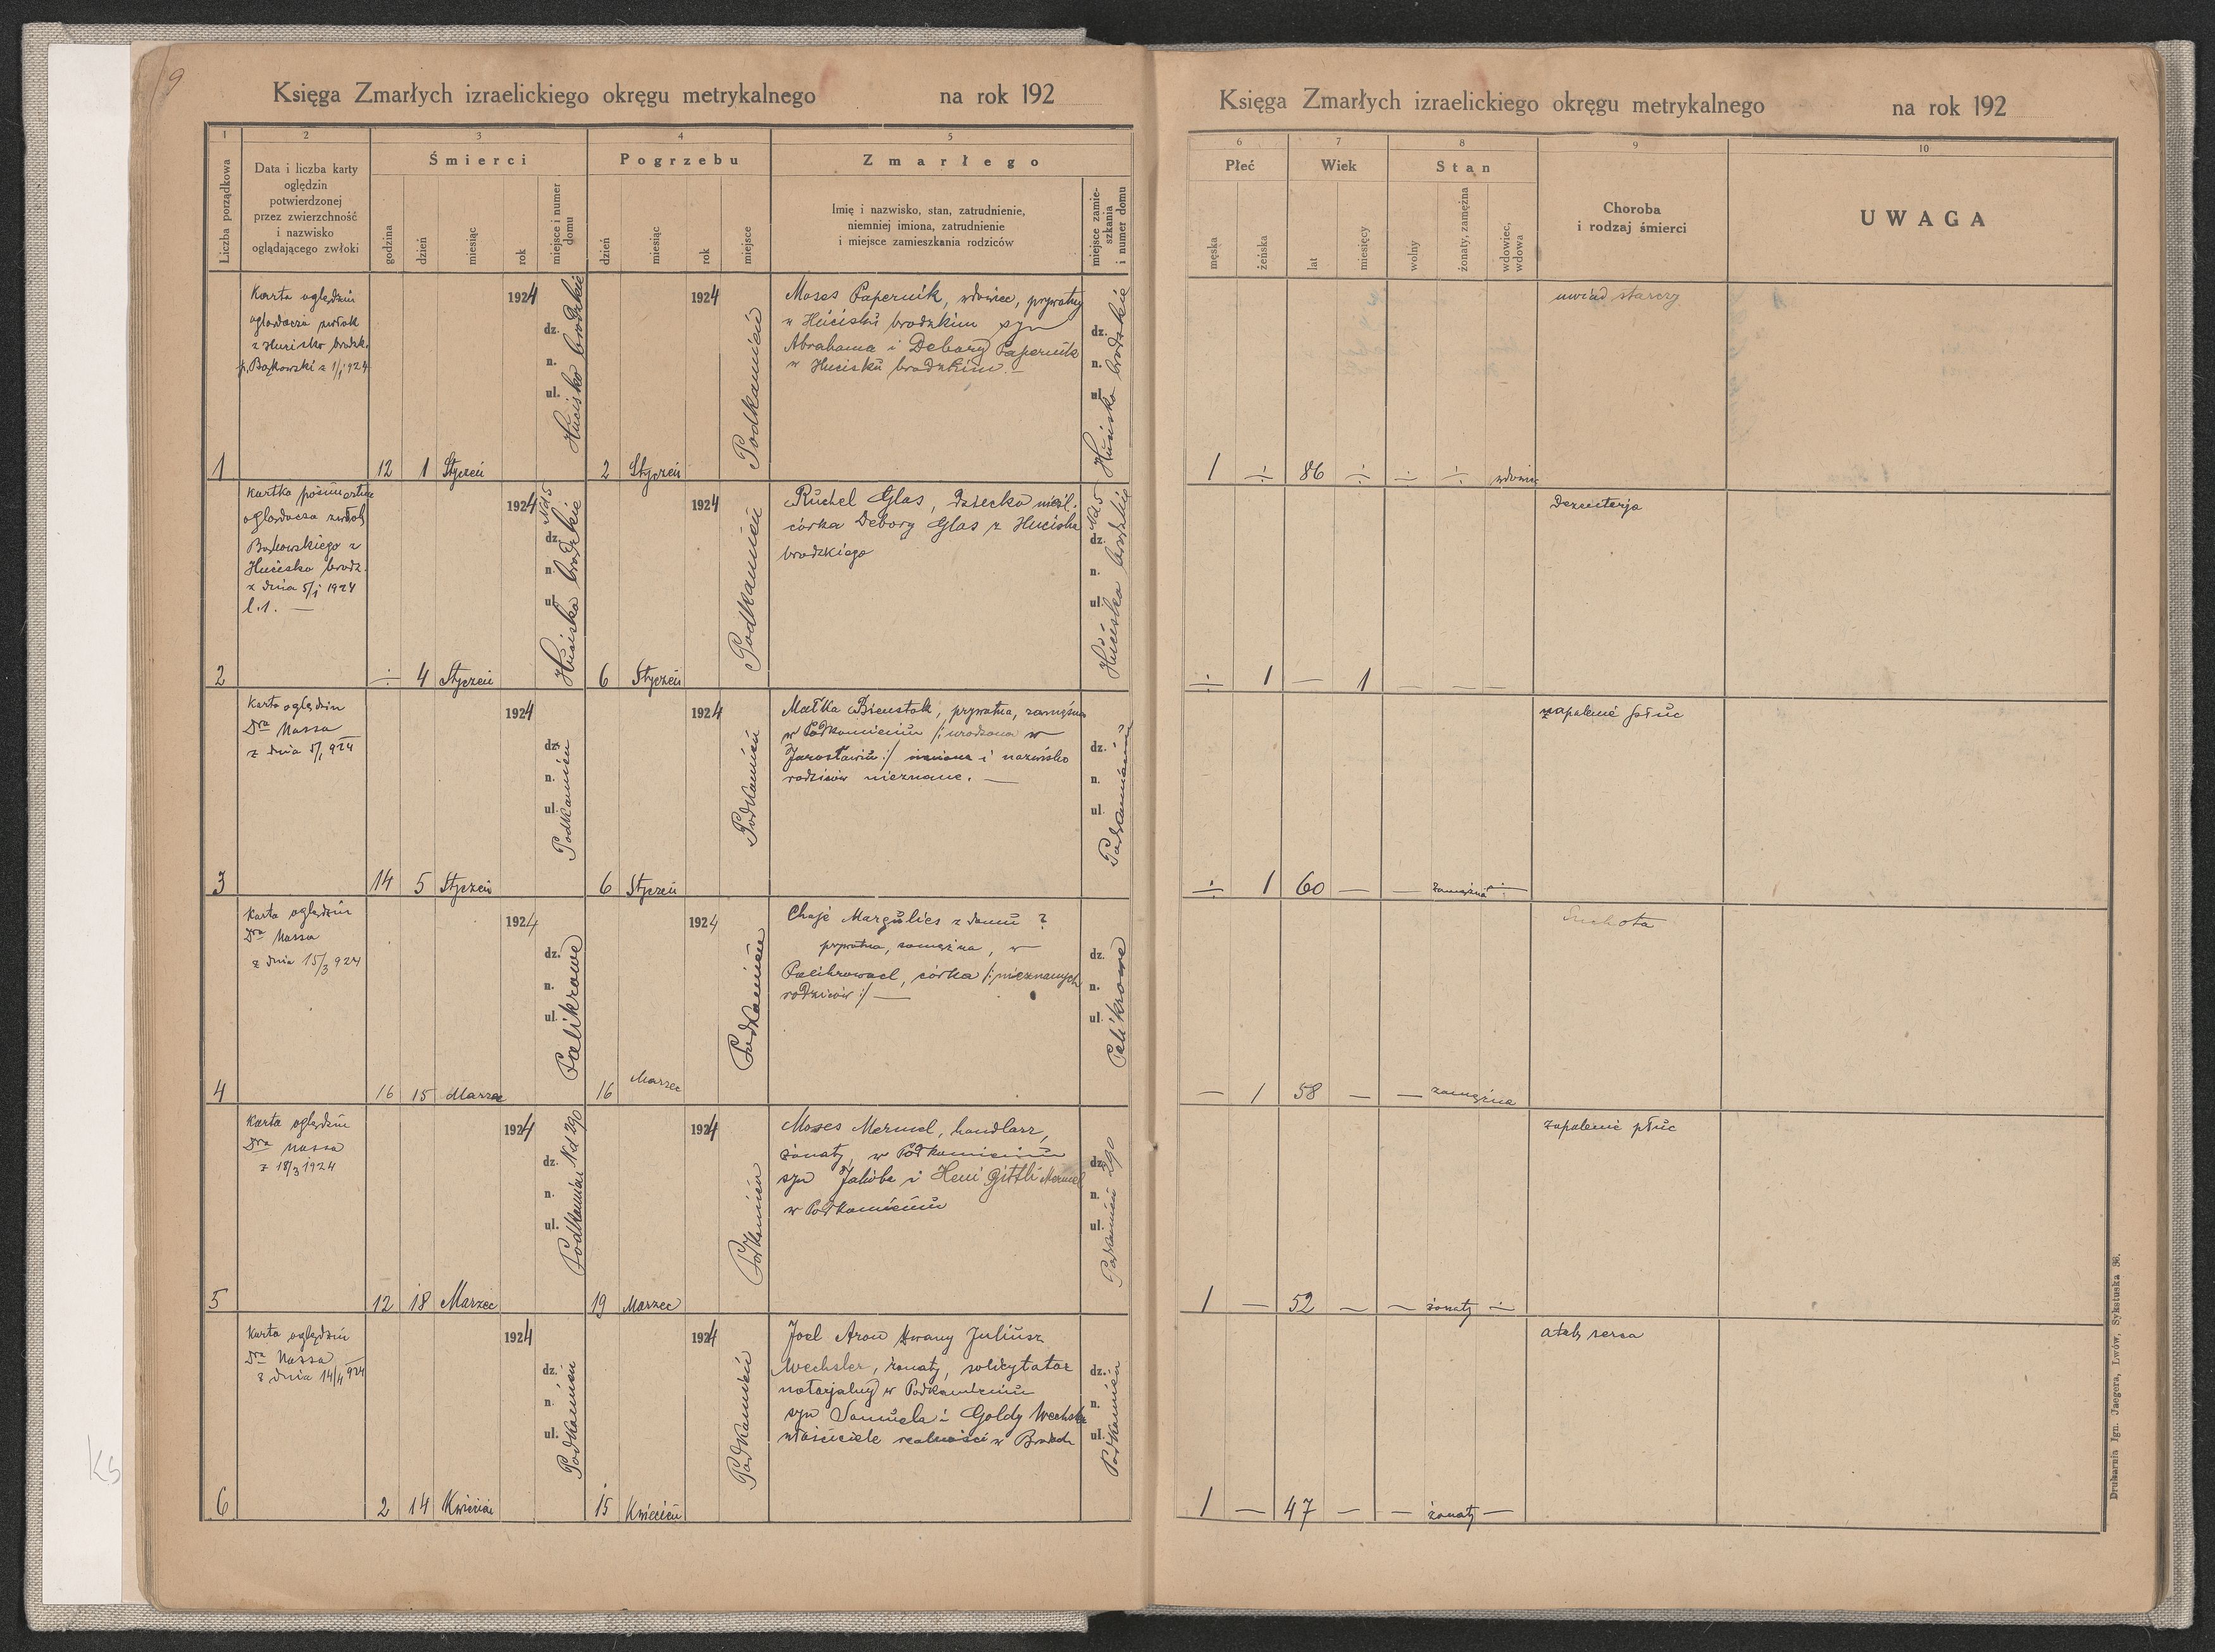 9
Księga Zmarłych izraelickiego okręgu metrykalnego na rok 192
1 2 3 4 5
Liczba porządkowa
Data i liczba karty
oględzin
potwierdzonej
przez zwierzchność
i nazwisko
oglądającego zwłoki
Śmierci
godzina
dzień
miesiąc
rok
miejsce i numer
domu
Pogrzebu
dzień
miesiąc
rok
miejsce
Zmarłego
Imię i nazwisko, stan, zatrudnienie,
niemniej imiona, zatrudnienie
i miejsce zamieszkania rodziców
miejsce zamie-
szkania
i numer domu
1
Karta oględzin
oglądacza zwłok
z Hucisko brodzk.
p. Bąkowski z 1/1 924
12 1 Styczeń 1924
dz.
n.
ul.
Hucisko brodzkie
2 Styczeń 1924
Podkamień
Moses Papernik, wdowiec, prywatny
w Hucisku brodzkim syn
Abrahama i Debory Papernik
w Hucisku brodzkim. —
dz.
n.
ul.
Hucisko brodzkie
2
Kartka pośmiertna
oglądacza zwłok
Bąkowskiego z
Hucisko brodz.
z dnia 5/1 1924
l. 1. —
÷ 4 Styczeń 1924
dz.
n.
ul.
Hucisko brodzkie Nd 5
6 Styczeń 1924
Podkamień
Ruchel Glas, dziecko nieśl.
córka Debory Glas z Huciska
brodzkiego
dz.
n.
ul.
Hucisko brodzkie Nd. 5
3
Karta oględzin
Dra Nassa
z dnia 5/1 924
14 5 Styczeń 1924
dz.
n.
ul.
Podkamień
6 Styczeń 1924
Podkamień
Małka Bienstok, prywatna, zamężna
w Podkamieniu /: urodzona w
Jarosławiu :/ imiona i nazwisko
rodziców nieznane. —
dz.
n.
ul.
Podkamień
4
Karta oględzin
Dra Nassa
z dnia 15/3 924
16 15 Marzec 1924
dz.
n.
ul.
Palikrowe
16 Marzec 1924
Podkamień
Chaje Margulies z domu ?
prywatna, zamężna, w
Palikrowach, córka /: nieznanych
rodziców :/ —
dz.
n.
ul.
Palikrowe
5
Karta oględzin
Dra Nassa
z 18/3 1924
12 18 Marzec 1924
dz.
n.
ul.
Podkamień Nd 290
19 Marzec 1924
Podkamień
Moses Mermel, handlarz,
żonaty, w Podkamieniu
syn Jakóba i Heni Gittli Mermel
w Podkamieniu
dz.
n.
ul.
Podkamień 290
6
Karta oględzin
Dra Nassa
z dnia 14/4 924
2 14 Kwiecień 1924
dz.
n.
ul.
Podkamień
15 Kwiecień 1924
Podkamień
Joel Aron zwany Juliusz
Wechsler, żonaty, solicytator
notarjalny w Podkamieniu
syn Samuela i Goldy Wechsler
właściciele realności w Brodach
dz.
n.
ul.
Podkamień
Księga Zmarłych izraelickiego okręgu metrykalnego na rok 192
6 7 8 9 10
Płeć
męska
żeńska
Wiek
lat
miesięcy
Stan
wolny
żonaty, zamężna
wdowiec,
wdowa
Choroba
i rodzaj śmierci
UWAGA
1 ÷ 86 ÷ ÷ ÷ wdowiec
uwiąd starczy
÷ 1 — 1 — — —
Dezenterja
÷ 1 60 — — zamężna ÷
zapalenie płuc
— 1 58 — — zamężna
Suchota
1 — 52 — — żonaty ÷
zapalenie płuc
1 — 47 — — żonaty —
atak serca
Drukarnia Ign. Jaegera, Lwów, Sykstuska 36.